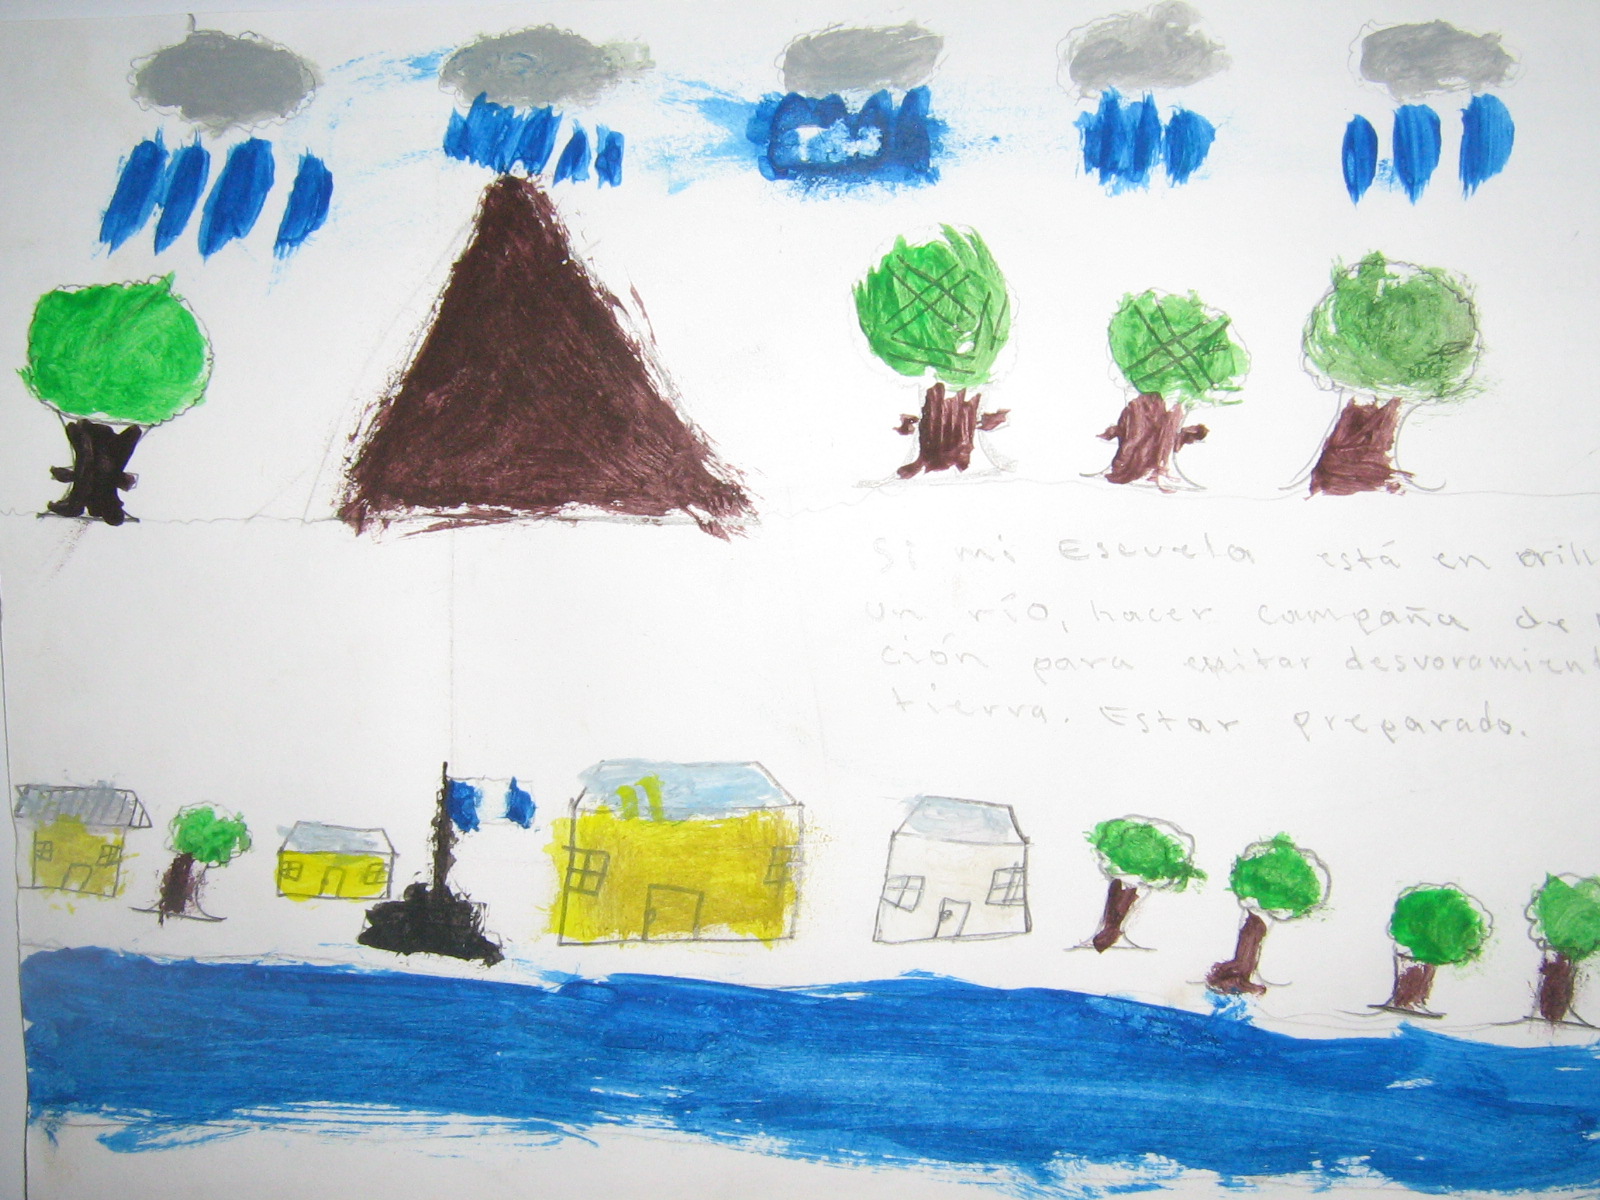 Si mi Escuela está en orill
un río, hacer campaña de
ción para evitar desvoramient
tierra. Estar preparado.